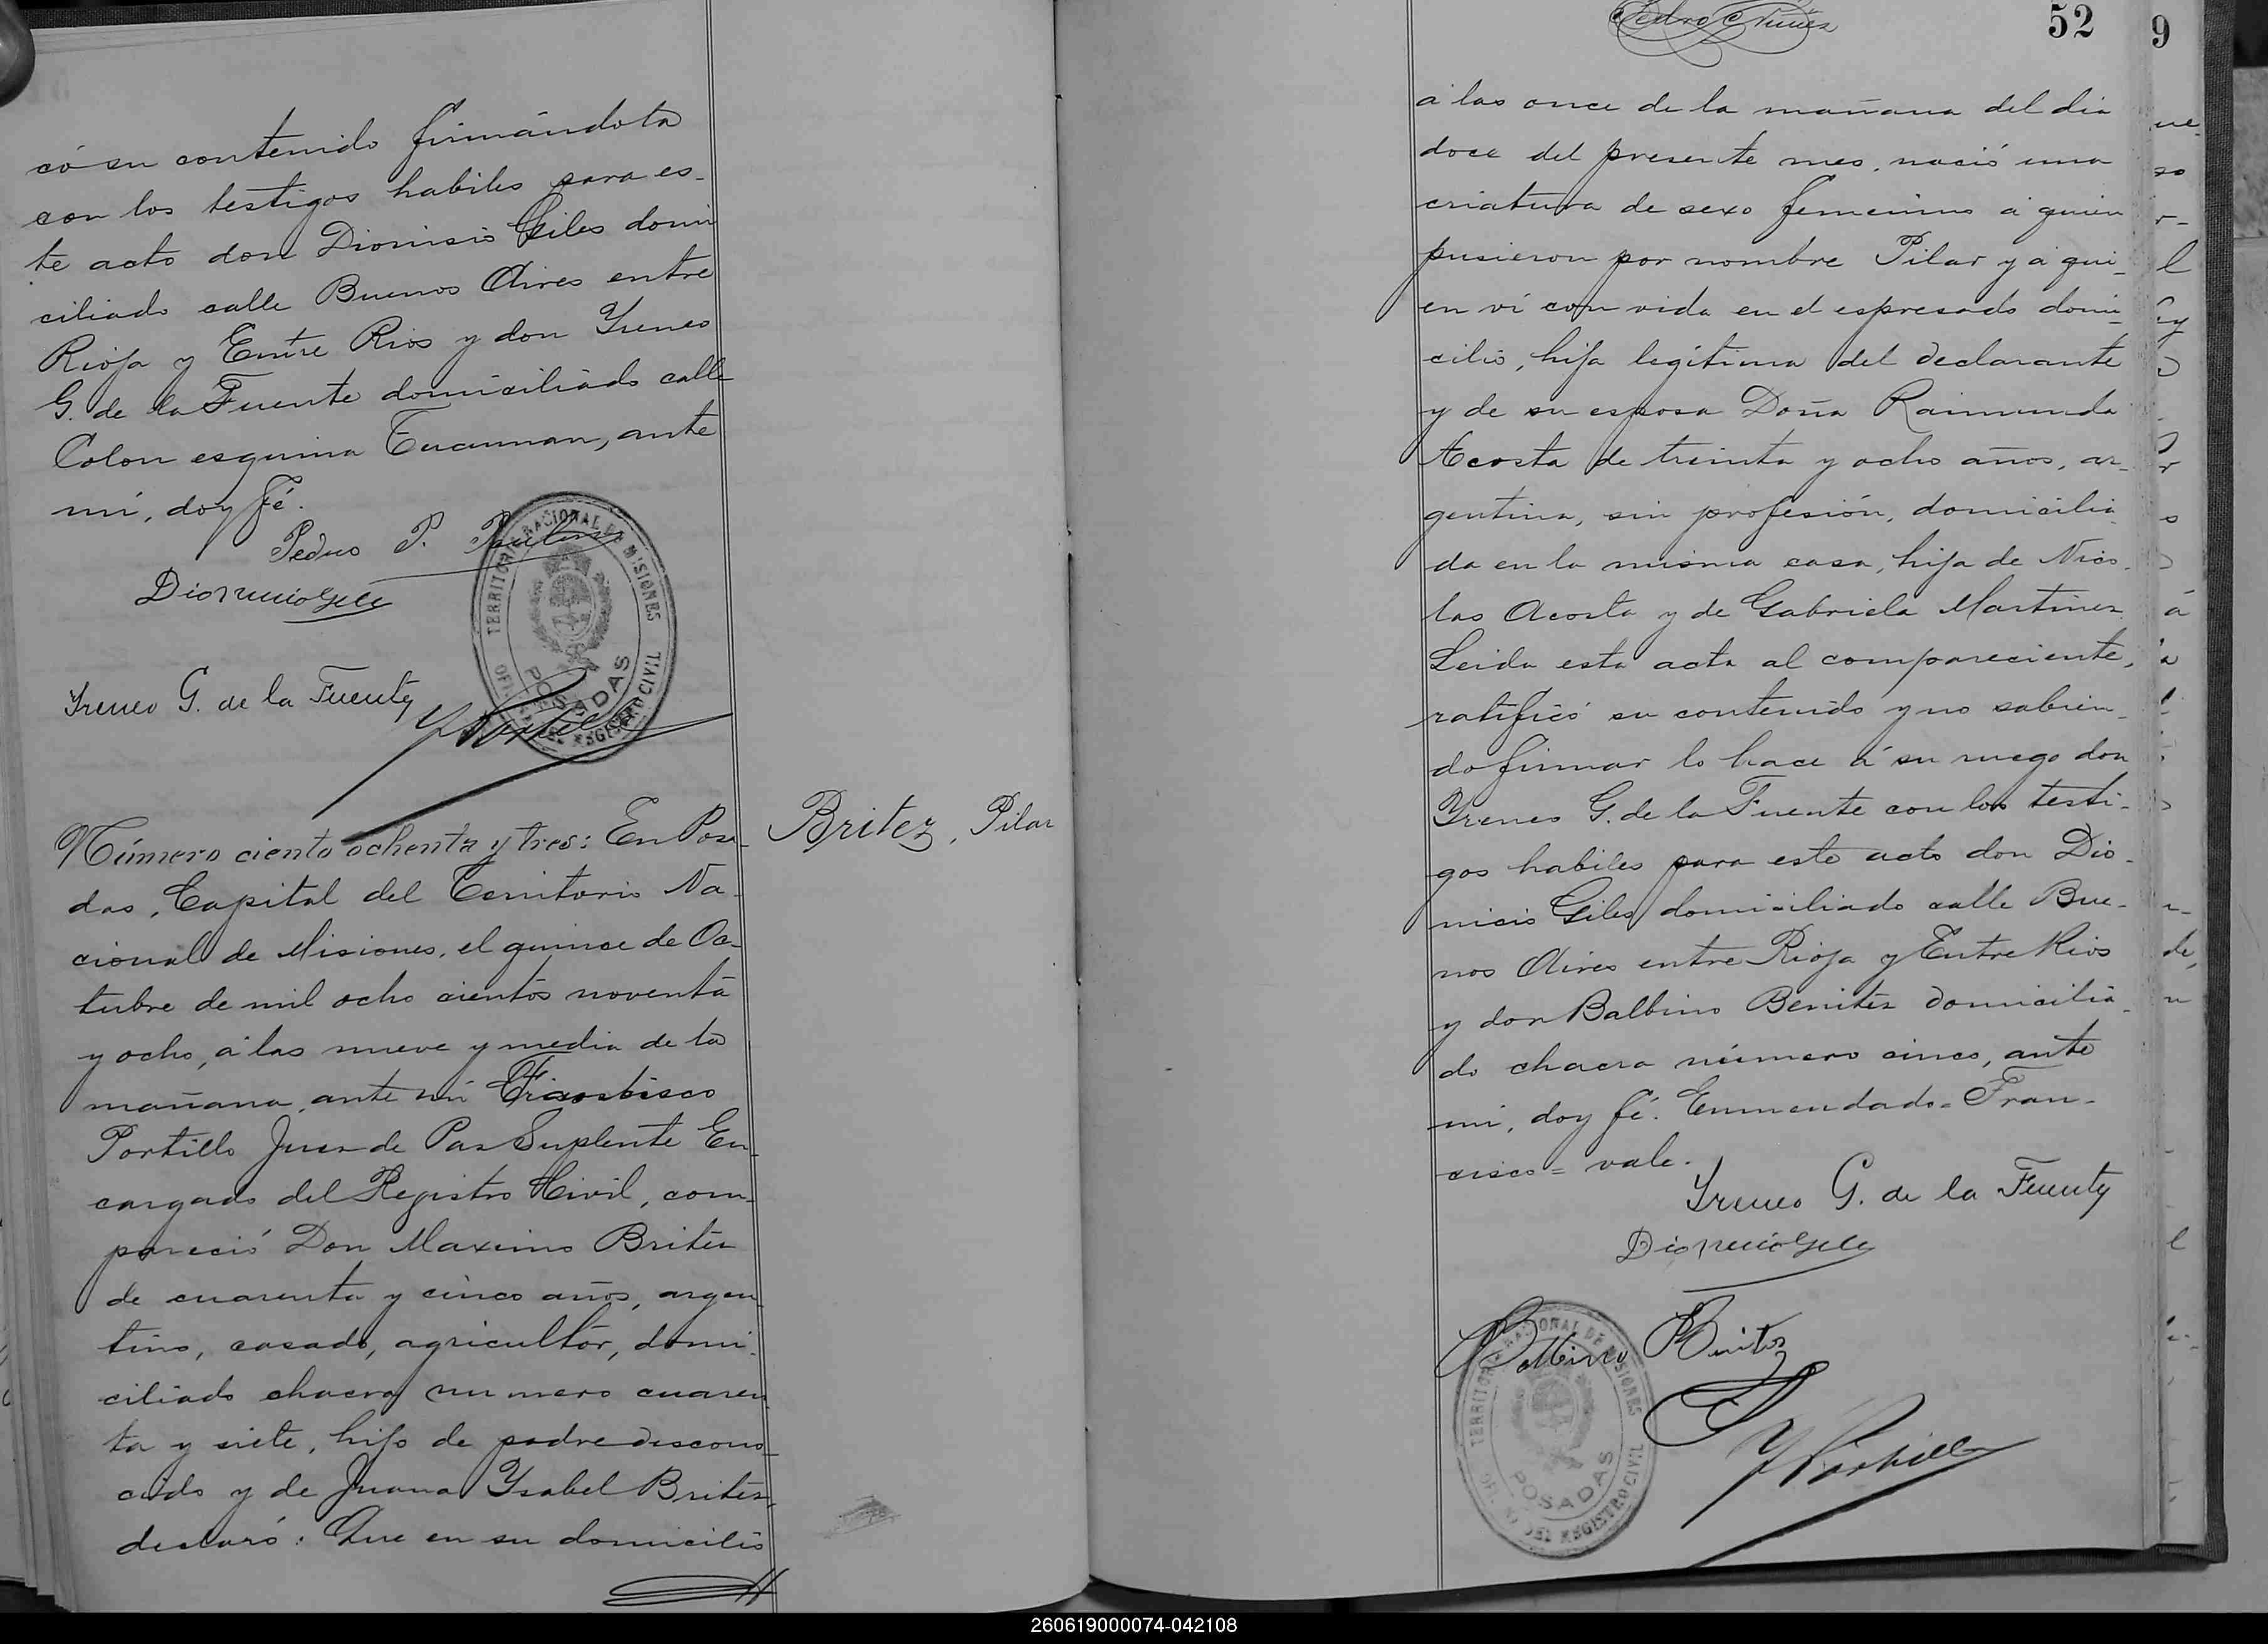 có su contenido firmándola
con los testigos habiles para es-
te acto don Dionisio Giles domi
ciliado calle Buenos Aires entre
Rioja y Entre Rios y don Yreneo
G. de la Fuente domiciliado calle
Colon esquina Tucuman, ante
mí, doy fé.
Pedro P.
TERRITORIO NACIONAL DE MISIONES
POSADAS
OFI. DEL REGISTRO CIVIL
Yreneo G. de la Fuente
Y Portillo
Número ciento ochenta y tres: En Posa-
das, Capital del Territorio Na-
cional de Misiones, el quince de Oc-
tubre de mil ocho cientos noventa
y ocho, á las nueve y media de la
mañana, ante mí Francisco
Portillo Juez de Paz Suplente En-
cargado del Registro Civil, com-
pareció Don Maximo Britez
de cuarenta y cinco años, argen-
tino, casado, agricultor, domi-
ciliado chacra número cuaren
ta y siete, hijo de padre descono-
cido y de Juana Ysabel Britez,
declaró: Que en su domicilio
Britez, Pilar
Pedro Nuñez
52
9
á las once de la mañana del dia
doce del presente mes, nació una
criatura de sexo femenino á quien
pusieron por nombre Pilar y á qui-
en ví con vida en el espresado domi-
cilio, hija legítima del declarante
y de su esposa Doña Raimunda
Acosta de treinta y ocho años, ar-
gentina, sin profesión, domicilia-
da en la misma casa, hija de Nico-
las Acosta y de Gabriela Martinez.
Leida esta acta al compareciente,
ratificó su contenido y no sabien-
do firmar lo hace á su ruego don
Yreneo G. de la Fuente con los testi-
gos habiles para este acto don Dio-
nicio Giles domiciliado calle Bue-
nos Aires entre Rioja y Entre Rios
y don Balbino Benitez domicilia-
do chacra número cinco, ante
mi, doy fé. Enmendado = Fran-
cisco = vale.
Yreneo G. de la Fuente
Balbino Benitez
TERRITORIO NACIONAL DE MISIONES
POSADAS
OFI. DEL REGISTRO CIVIL
Y Portillo
260619000074-042108